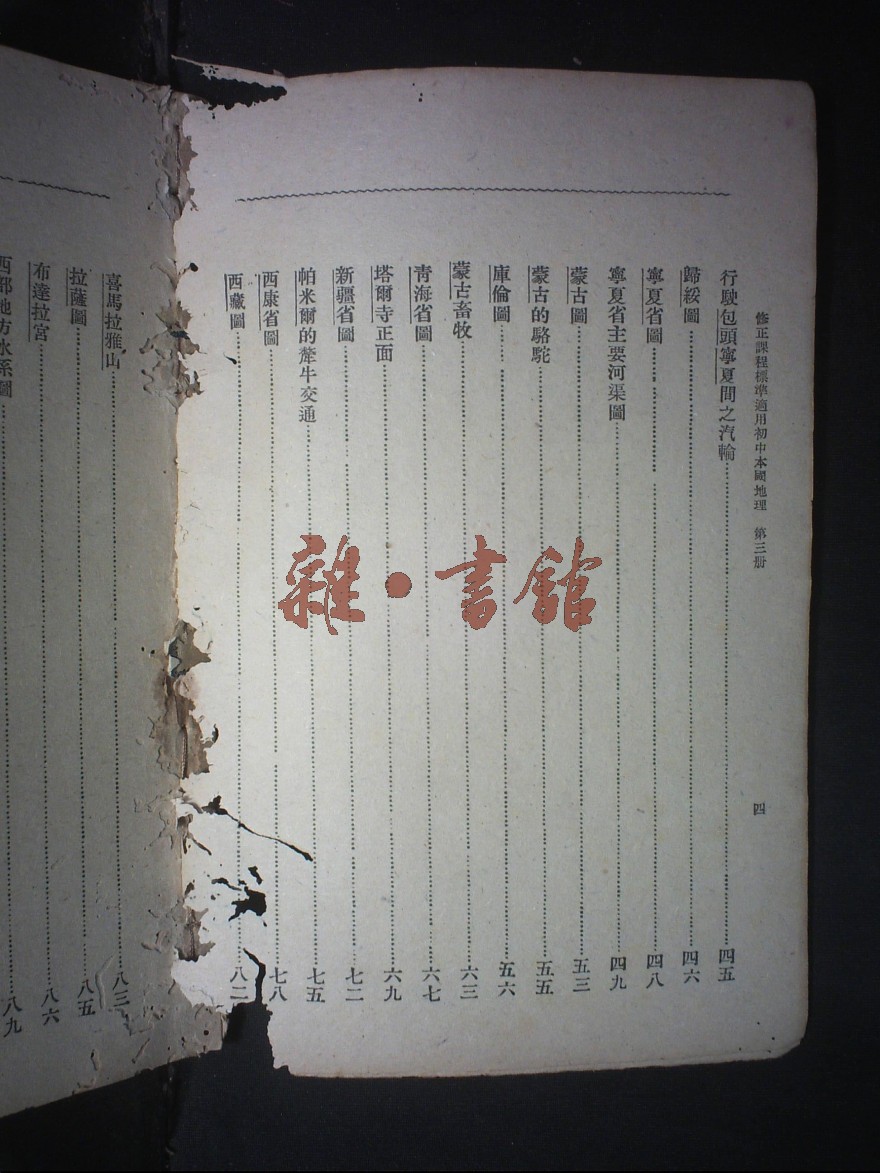 修正課程標準適用初中本國地理 第三册 四
行駛包頭寧夏間之汽輪 四五
歸綏圖 四六
寧夏省圖 四八
寧夏省主要河渠圖 四九
蒙古圖 五三
蒙古的駱駝 五五
庫倫圖 五六
蒙古畜牧 六三
青海省圖 六七
塔爾寺正面 六九
新疆省圖 七二
帕米爾的犛牛交通 七五
西康省圖 七八
西藏圖 八二
喜馬拉雅山 八三
拉薩圖 八五
布達拉宮 八六
西部地方水系圖 八九
雜·書館